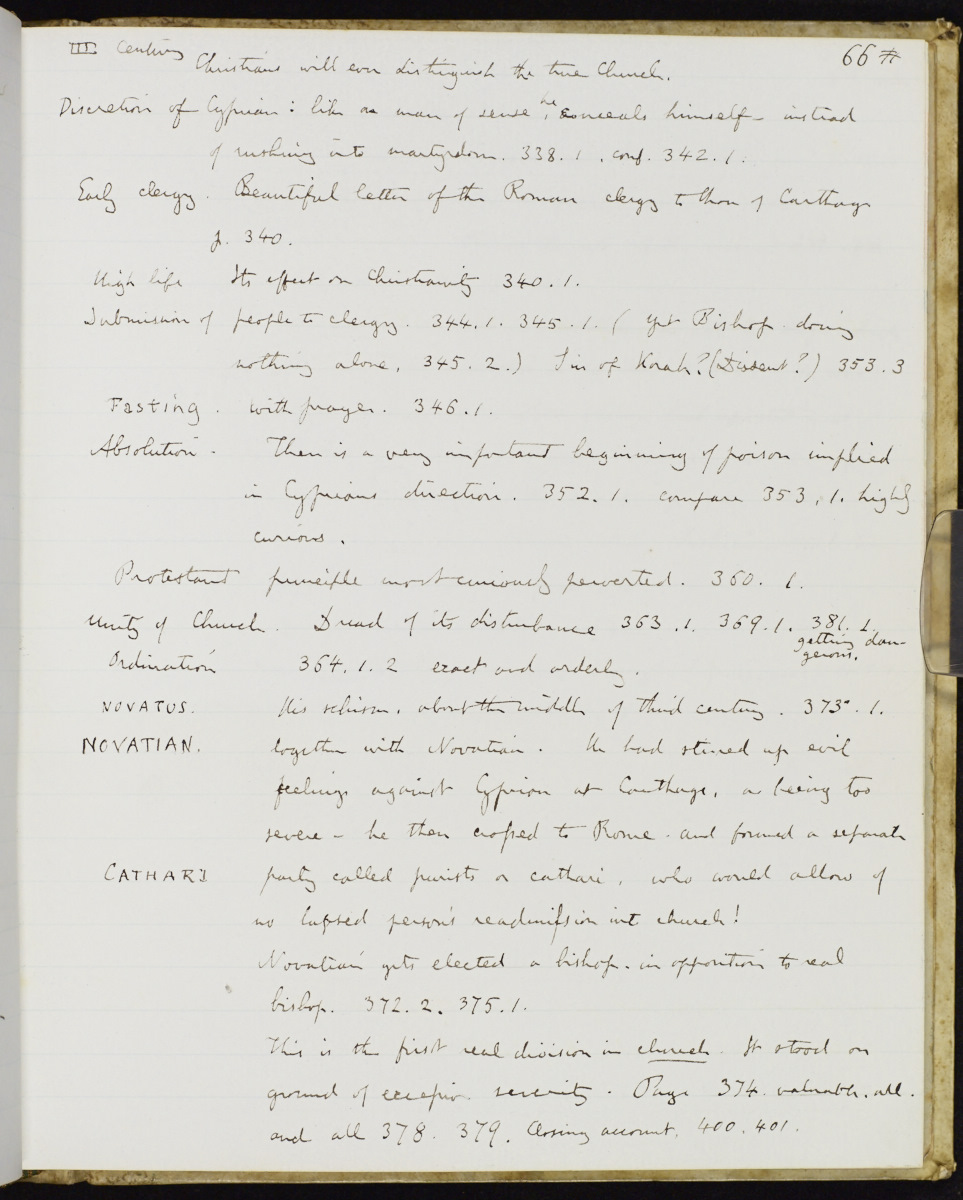 III Century 66
Christians will ever distinguish the true Church.
Discretion of Cyprian: like a man of sense, he conceals himself - instead
of rushing into martyrdom. 338. 1. conf. 342. 1.
Early clergy. Beautiful letter of the Roman clergy to those of Carthage
p. 340.
High life Its effect on Christianity 340. 1.
Submission of people to clergy. 344. 1. 345. 1. (yet Bishop doing
nothing alone, 345. 2.) Sin of Korah? (Dissent?) 353. 3
Fasting. with prayer. 346. 1.
Absolution. There is a very important beginning of poison implied
in Cyprians direction. 352. 1. compare 353, 1. highly
curious.
Protestant principle most curiously perverted. 360. 1.
Unity of Church. Dread of its disturbance 363. 1. 369. 1. 381. 1.
getting dan-
gerous.
Ordination 364. 1. 2 exact and orderly.
NOVATUS. His schism, about the middle of third century. 373. 1.
NOVATIAN. together with Novatian. He had stirred up evil
feelings against Cyprian at Carthage, as being too
severe - he then crossed to Rome - and formed a separate
CATHARI party called purists or cathari, who would allow of
no lapsed person's readmission into church!
Novatian gets elected a bishop. in opposition to real
bishop. 372. 2. 375. 1.
This is the first real division in church. It stood on
ground of severity. Page 374 valuable. all.
and all 378. 379. Closing account, 400. 401.